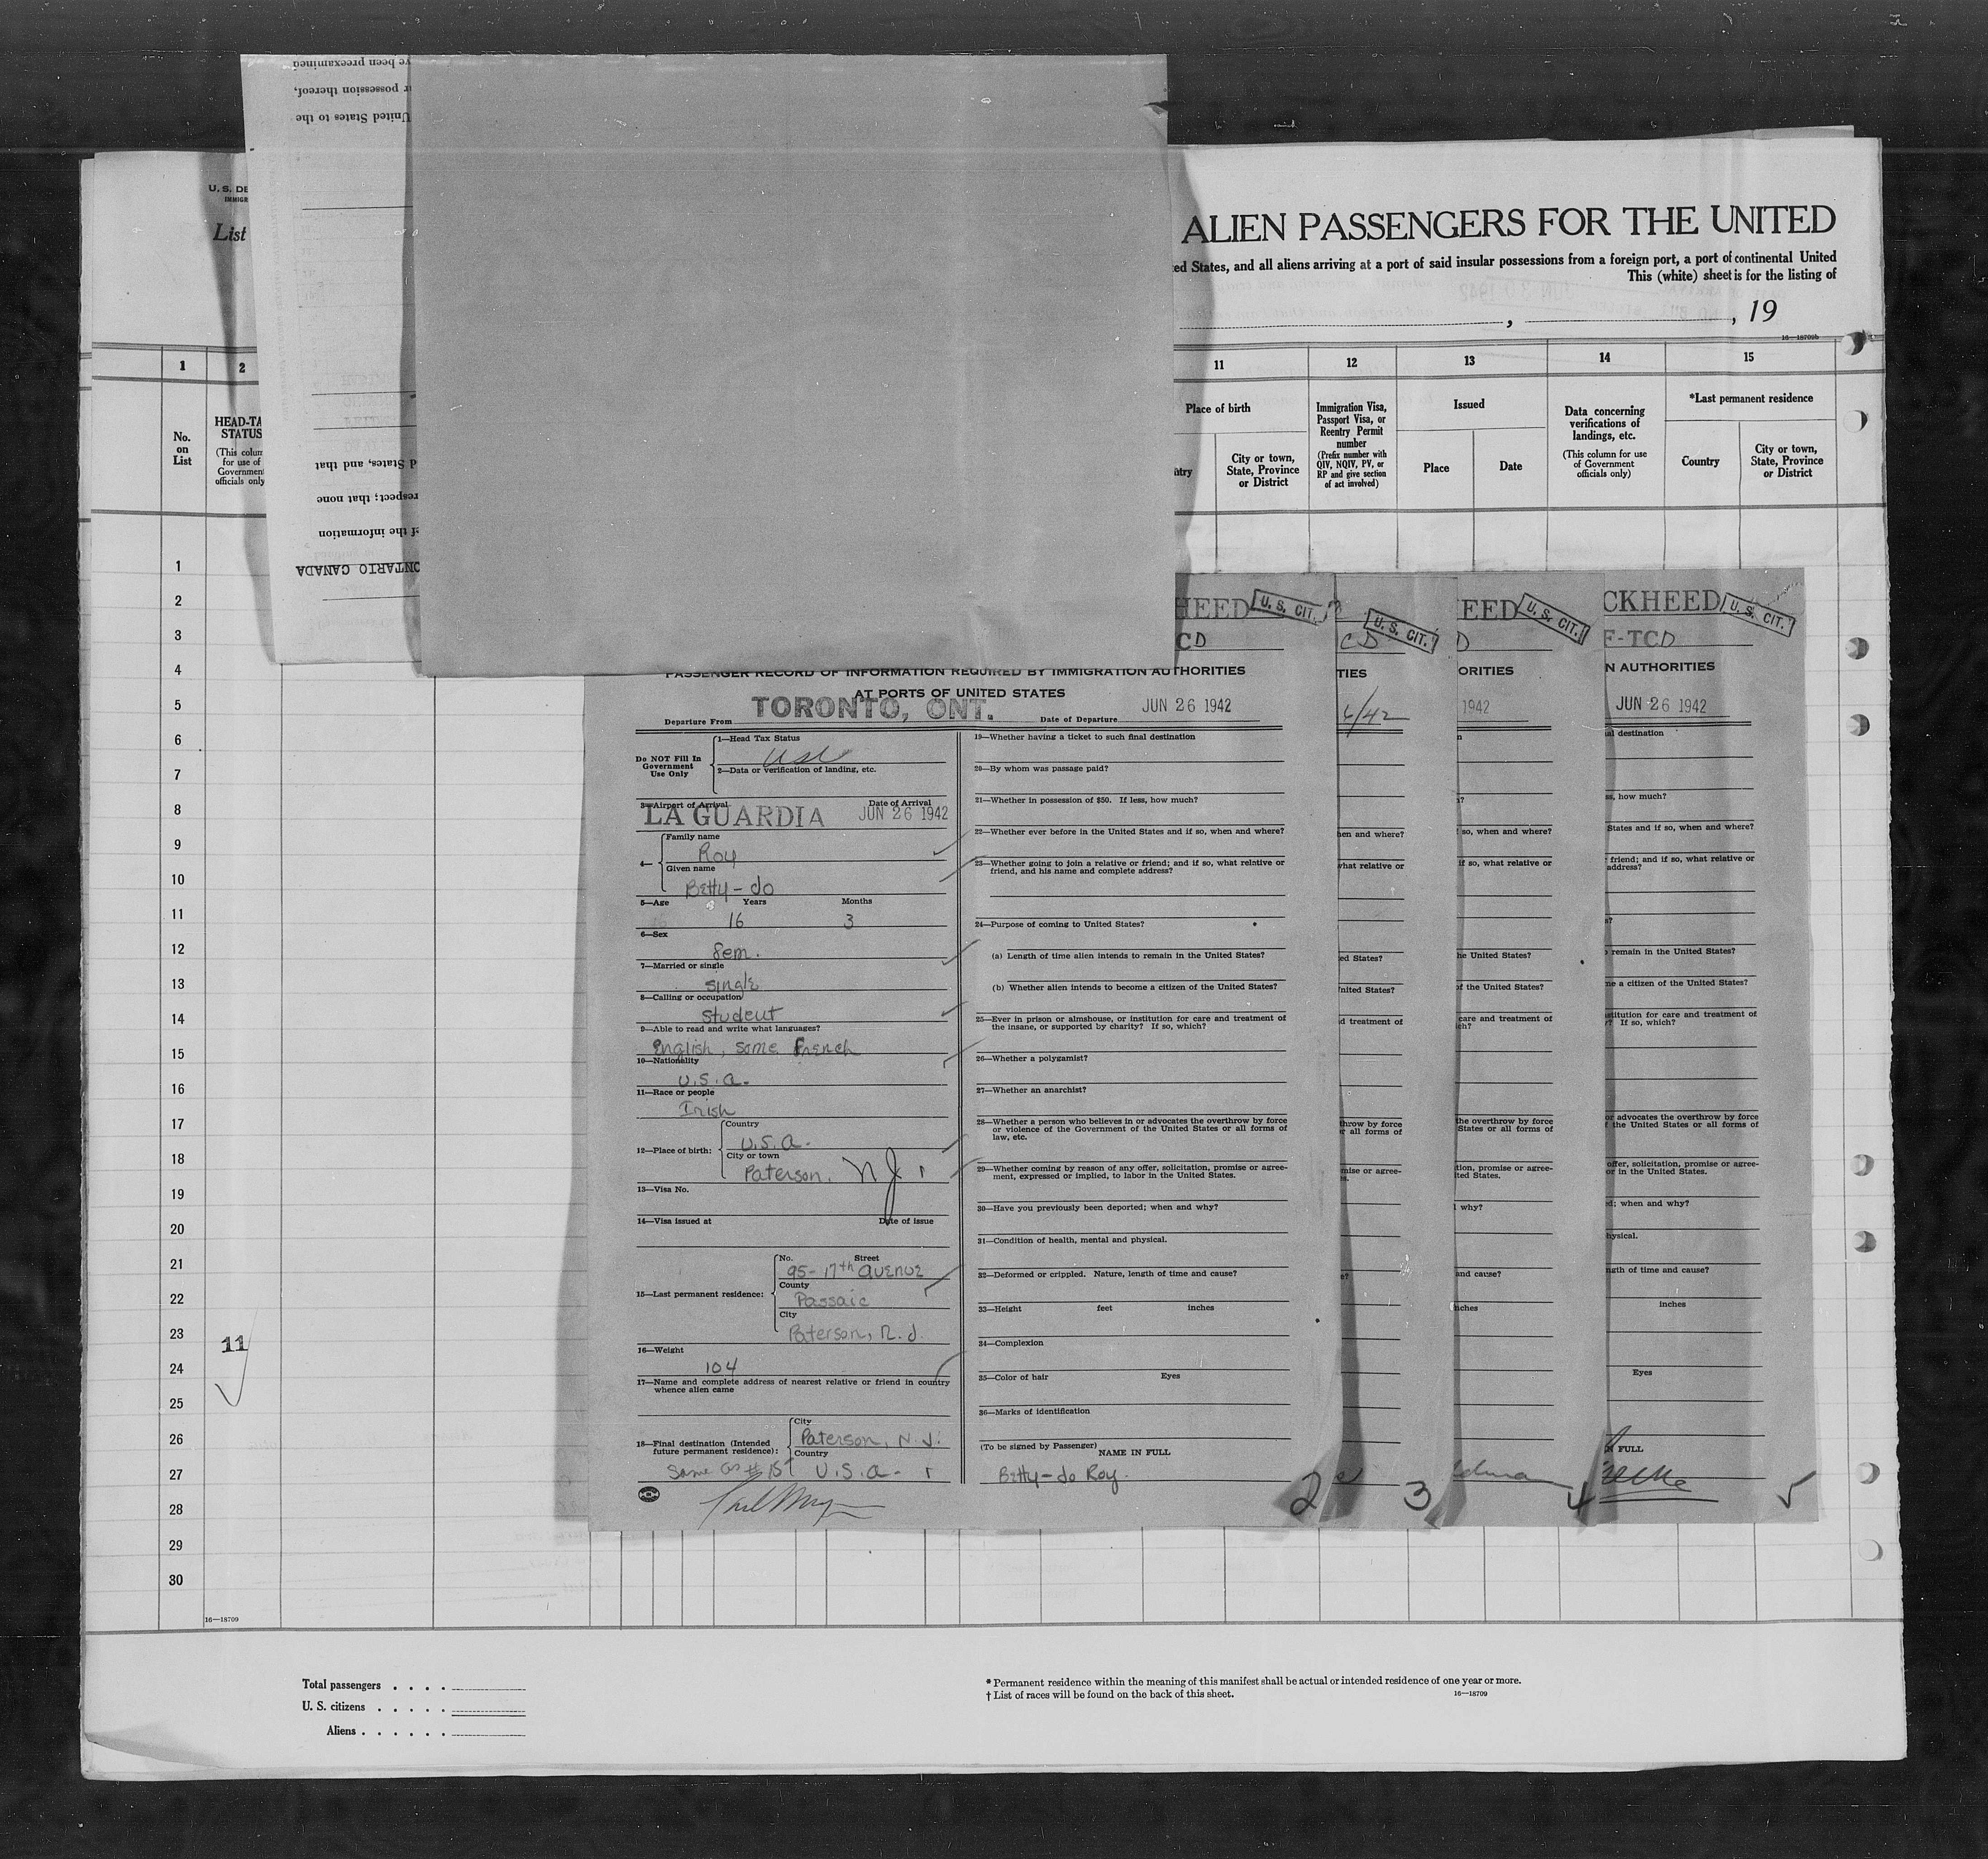 ve been preexamined
r possession thereof,
United States to the
d States, and that
respect; that none
of the information
ONTARIO CANADA
U. S. DE
IMMIGR
List
ALIEN PASSENGERS FOR THE UNITED
ted States, and all aliens arriving at a port of said insular possessions from a foreign port, a port of continental United
This (white) sheet is for the listing of
, , 19
16—18709b
1 2 11 12 13 14 15
No. on List
HEAD-TA
STATUS
(This colum
for use of
Government
officials only
Place of birth
ntry
City or town,
State, Province
or District
Immigration Visa,
Passport Visa, or
Reentry Permit
number
(Prefix number with
QIV, NQIV, PV, or
RP and give section
of act involved)
Issued
Place
Date
Data concerning
verifications of
landings, etc.
(This column for use
of Government
officials only)
*Last permanent residence
Country
City or town,
State, Province
or District
1
2
3
4
5
6
7
8
9
10
11
12
13
14
15
16
17
18
19
20
21
22
23
24
25
26
27
28
29
30
11
16—18709
HEED U. S. CIT.
CD
PASSENGER RECORD OF INFORMATION REQUIRED BY IMMIGRATION AUTHORITIES
AT PORTS OF UNITED STATES
Departure From TORONTO, ONT. Date of Departure JUN 26 1942
Do NOT Fill In
Government
Use Only
1—Head Tax Status
USC
2—Data or verification of landing, etc.
3—Airport of Arrival Date of Arrival
LA GUARDIA JUN 26 1942
4—
Family name
Roy
Given name
Betty-Jo
5—Age Years Months
16 3
6—Sex
Fem.
7—Married or single
Single
8—Calling or occupation
Student
9—Able to read and write what languages?
English, some French
10—Nationality
U.S.A.
11—Race or people
Irish
12—Place of birth:
Country
U.S.A.
City or town
Paterson, NJ
13—Visa No.
14—Visa issued at Date of issue
15—Last permanent residence:
No. Street
95-17th Avenue
County
Passaic
City
Paterson, N.J.
16—Weight
104
17—Name and complete address of nearest relative or friend in country
whence alien came
18—Final destination (Intended
future permanent residence):
City
Paterson, N.J.
Country
Same as #15 U.S.A.
19—Whether having a ticket to such final destination
20—By whom was passage paid?
21—Whether in possession of $50. If less, how much?
22—Whether ever before in the United States and if so, when and where?
23—Whether going to join a relative or friend; and if so, what relative or
friend, and his name and complete address?
24—Purpose of coming to United States?
(a) Length of time alien intends to remain in the United States?
(b) Whether alien intends to become a citizen of the United States?
25—Ever in prison or almshouse, or institution for care and treatment of
the insane, or supported by charity? If so, which?
26—Whether a polygamist?
27—Whether an anarchist?
28—Whether a person who believes in or advocates the overthrow by force
or violence of the Government of the United States or all forms of
law, etc.
29—Whether coming by reason of any offer, solicitation, promise or agree-
ment, expressed or implied, to labor in the United States.
30—Have you previously been deported; when and why?
31—Condition of health, mental and physical.
32—Deformed or crippled. Nature, length of time and cause?
33—Height feet inches
34—Complexion
35—Color of hair Eyes
36—Marks of identification
(To be signed by Passenger)
NAME IN FULL
Betty-Jo Roy.
2
U. S. CIT.
CD
TIES
6/42
hen and where?
what relative or
ed States?
United States?
d treatment of
hrow by force
r all forms of
mise or agree-
s.
e?
3
EED U. S. CIT.
D
ORITIES
1942
n
?
so, when and where?
if so, what relative or
he United States?
f the United States?
care and treatment of
ch?
the overthrow by force
States or all forms of
tion, promise or agree-
ted States.
why?
and cause?
inches
4
CKHEED U. S. CIT.
F-TCD
N AUTHORITIES
JUN 26 1942
al destination
s, how much?
States and if so, when and where?
friend; and if so, what relative or
address?
s?
remain in the United States?
me a citizen of the United States?
stitution for care and treatment of
? If so, which?
or advocates the overthrow by force
f the United States or all forms of
offer, solicitation, promise or agree-
or in the United States.
d; when and why?
hysical.
ngth of time and cause?
inches
Eyes
FULL
5
Total passengers . . . .
U. S. citizens . . . . .
Aliens . . . . . .
* Permanent residence within the meaning of this manifest shall be actual or intended residence of one year or more.
† List of races will be found on the back of this sheet. 16—18709